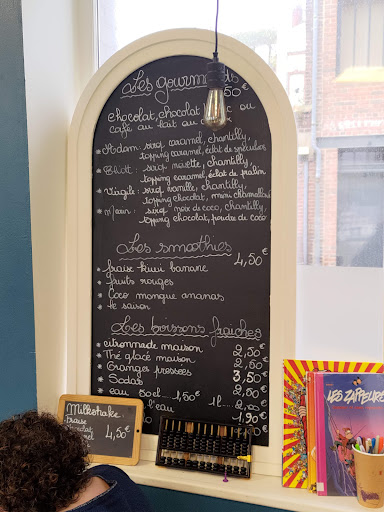 Les gourmands
50€
chocolat, chocolat ou
café au lait ou
* Aodam: sirop caramel, chantilly,
topping caramel, éclat de spéculoos
* Eliott: sirop noisette, chantilly,
topping caramel, éclat de pralin
* Virgile: sirop vanille, chantilly,
topping chocolat, mini chamallow
* sirop noix de coco, chantilly,
topping chocolat, poudre de coco
Les smoothies
4,50€
* fraise kiwi banane
* fruits rouges
* Coco mangue ananas
* de saison
Les boissons fraîches
* citronnade maison 2,50€
* Thé glacé maison 2,50€
* Oranges pressées 3,50€
* Sodas 2,50€
* eau 50cl...1,50€ 1l...2,50€
d'eau 1,90€
Milkshake
fraise
chocolat 4,50€
caramel
LES ZAPPEURS